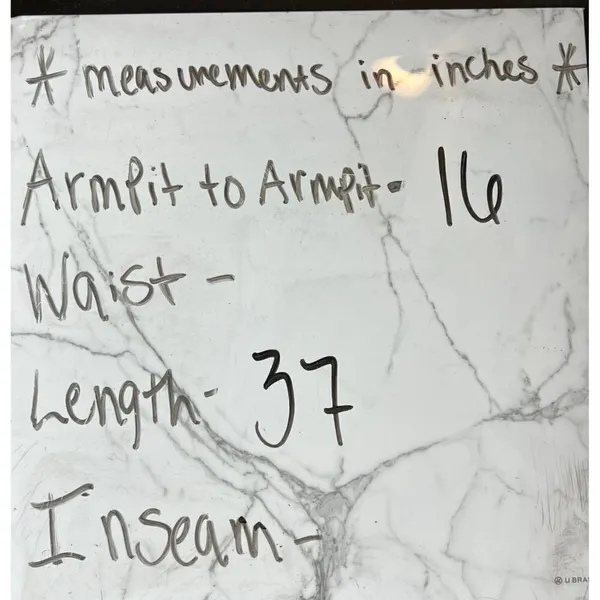 * measurements in inches *
ArmPit to Armpit- 16
Waist -
Length- 37
Inseam -
U BRA